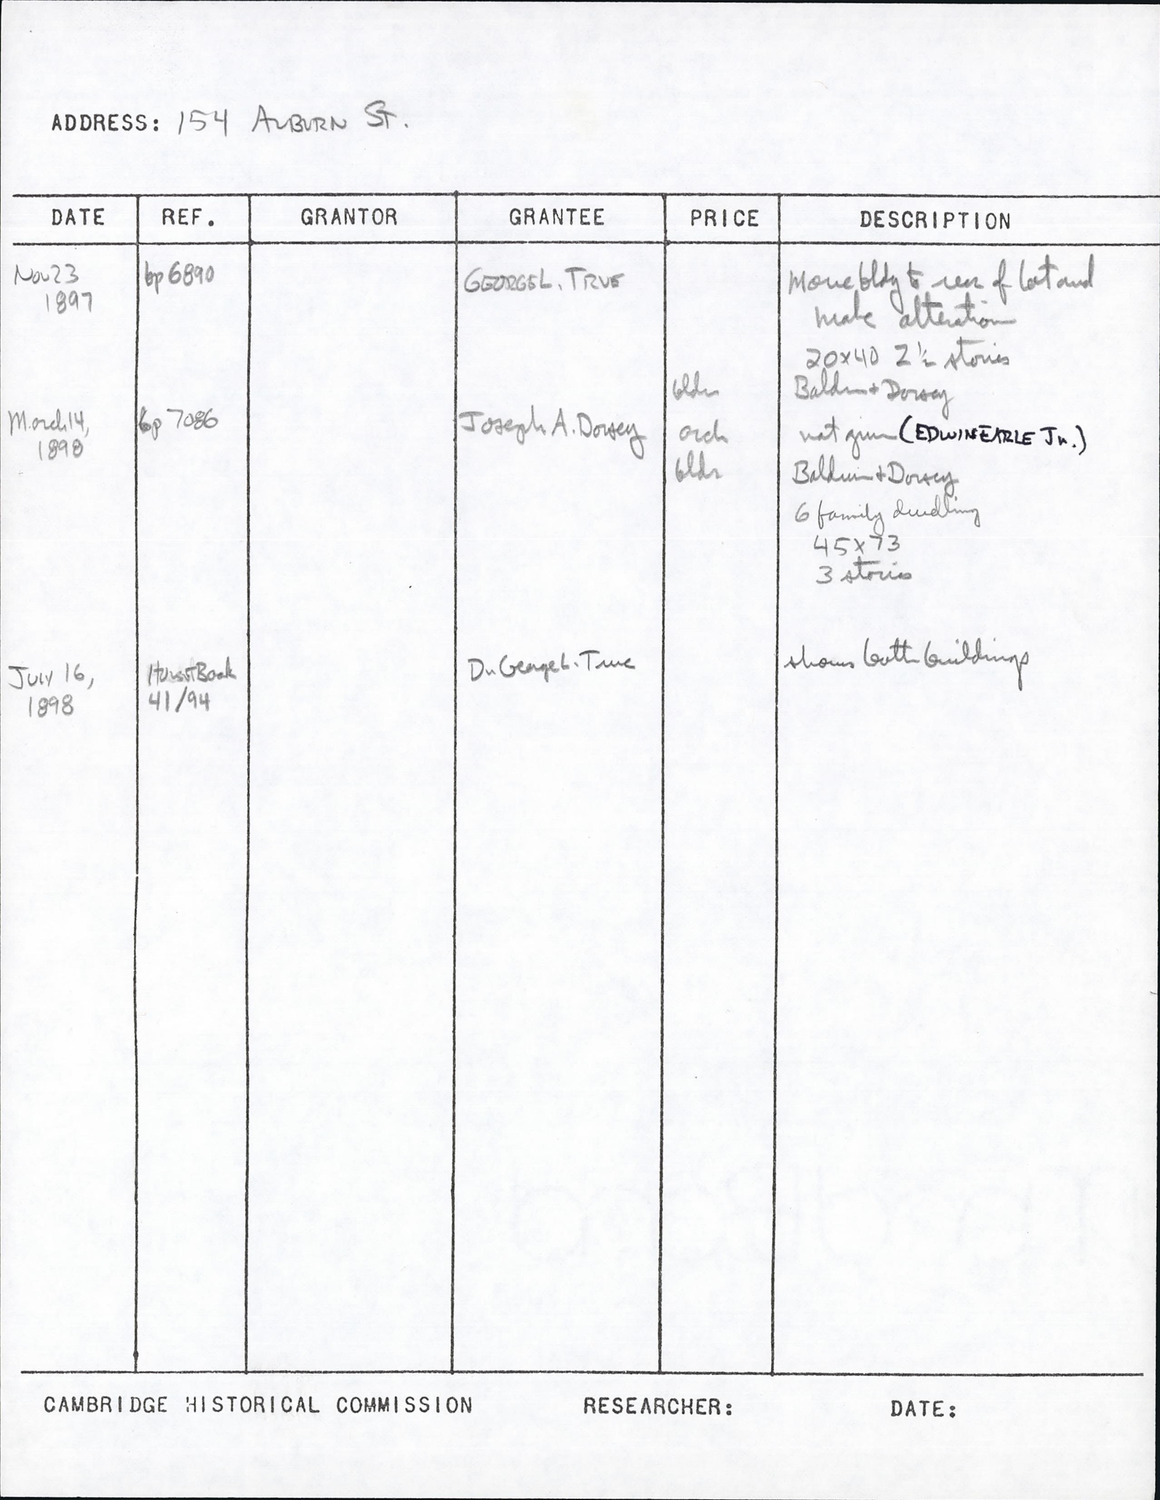 ADDRESS: 154 AUBURN ST.
DATE REF. GRANTOR GRANTEE PRICE DESCRIPTION
Nov 23 bp 6890 GEORGE L. TRUE Move bldg to rear of lot and
1897 make alteration
20x40 2½ stories
bldr Baldwin + Dorsey
March 14, bp 7086 Joseph A. Dorsey arch not given (EDWIN EARLE Jr.)
1898 bldr Baldwin + Dorsey
6 family dwelling
45x73
3 stories
July 16, Hurst Book Dr George L. True shows both buildings
1898 41/94
CAMBRIDGE HISTORICAL COMMISSION RESEARCHER: DATE: